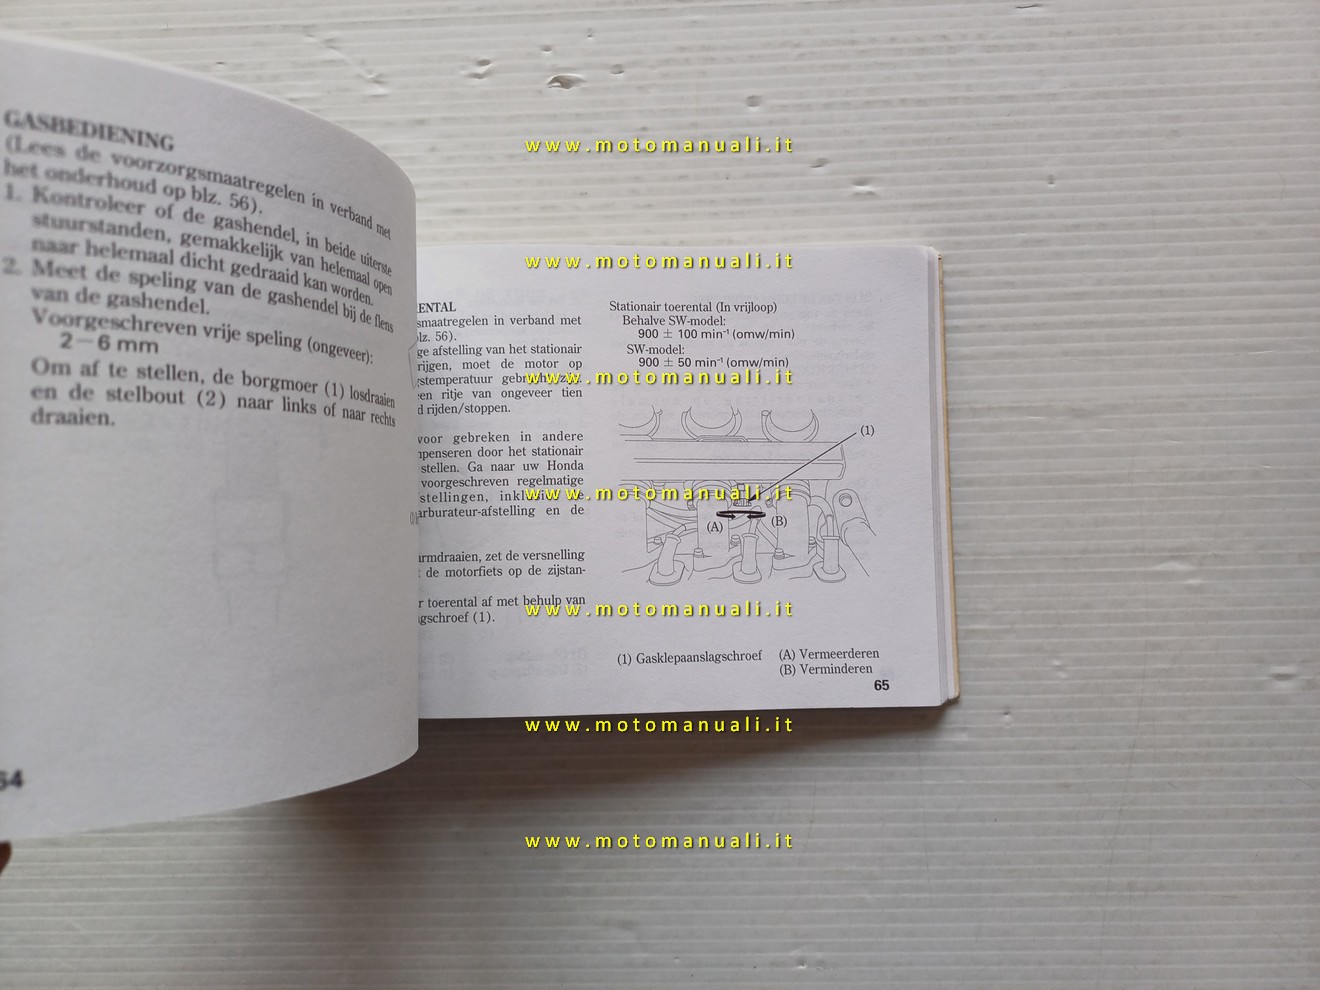 GASBEDIENING
(Lees de voorzorgsmaatregelen in verband met
het onderhoud op blz. 56).
1. Kontroleer of de gashendel, in beide uiterste
stuurstanden, gemakkelijk van helemaal open
naar helemaal dicht gedraaid kan worden.
2. Meet de speling van de gashendel bij de flens
van de gashendel.
Voorgeschreven vrije speling (ongeveer):
2–6 mm
Om af te stellen, de borgmoer (1) losdraaien
en de stelbout (2) naar links of naar rechts
draaien.
64
ERENTAL
smaatregelen in verband met
blz. 56).
ge afstelling van het stationair
rijgen, moet de motor op
gstemperatuur gebracht zijn.
een ritje van ongeveer tien
d rijden/stoppen.
voor gebreken in andere
mpenseren door het stationair
stellen. Ga naar uw Honda
voorgeschreven regelmatige
stellingen, inklusief de
arburateur-afstelling en de
armdraaien, zet de versnelling
de motorfiets op de zijstan-
r toerental af met behulp van
gschroef (1).
Stationair toerental (In vrijloop)
Behalve SW-model:
900 ± 100 min⁻¹ (omw/min)
SW-model:
900 ± 50 min⁻¹ (omw/min)
(1)
(A)
(B)
(1) Gasklepaanslagschroef
(A) Vermeerderen
(B) Verminderen
65
www.motomanuali.it
www.motomanuali.it
www.motomanuali.it
www.motomanuali.it
www.motomanuali.it
www.motomanuali.it
www.motomanuali.it